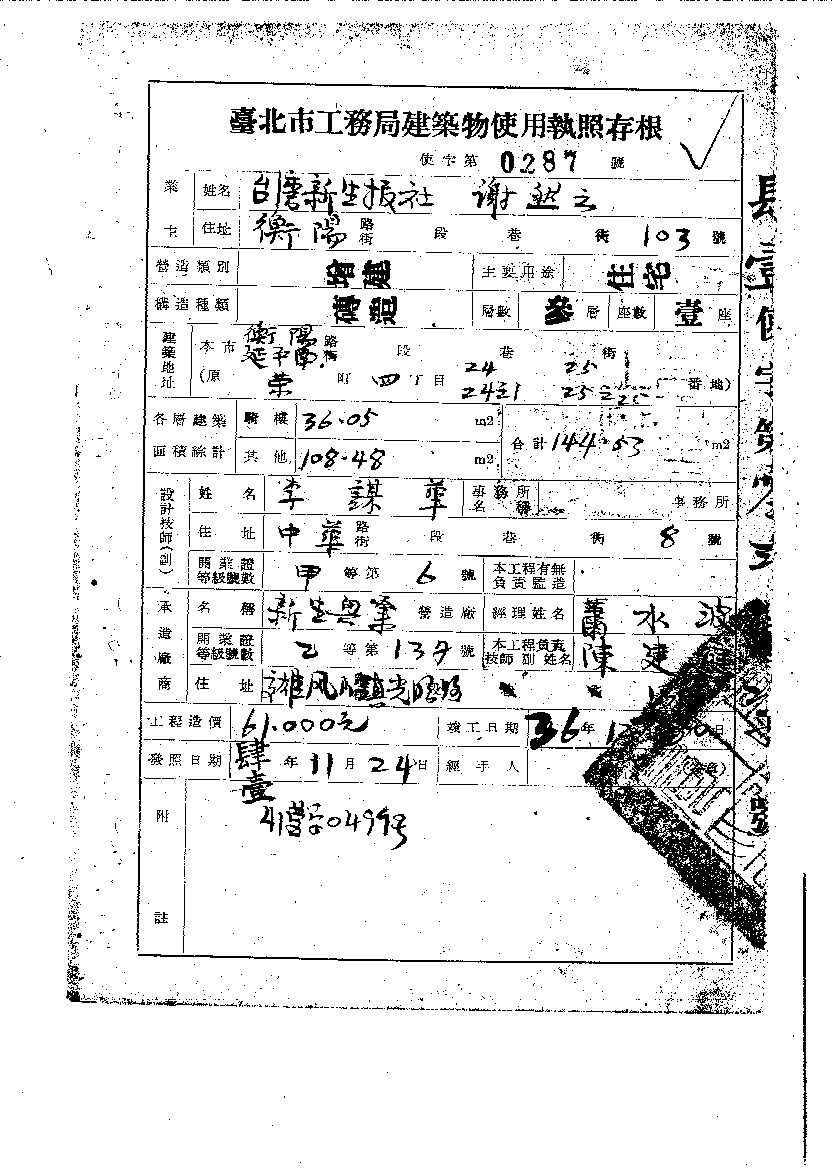 臺北市工務局建築物使用執照存根
使字第 0287 號
業主 姓名 台灣新生报社 謝然之
住址 衡陽 路街 段 巷 街 103 號
營造類別 增建 主要用途 住宅
構造種類 磚造 層數 參 層 座數 壹 座
建築地址 本市 衡陽 延平南 路街 段 巷 街
(原 榮 町 四 丁目 24 25 番地)
各層建築面積綜計 騎樓 36.05 m2 合計 144.53 m2
其他 108.48 m2
設計技師(副) 姓名 李謀華 事務所名稱 事務所
住址 中華 路街 段 巷 街 8 號
開業證等級號數 甲 等第 6 號 本工程有無負責監造
承造廠商 名稱 新生興業 營造廠 經理姓名 蕭水波
開業證等級號數 乙 等第 號 本工程負責技師副姓名 陳建
住址 號
工程造價 61.000元 竣工日期 36 年 日
發照日期 肆壹 年 11 月 24 日 經手人
附註 41營字0499号